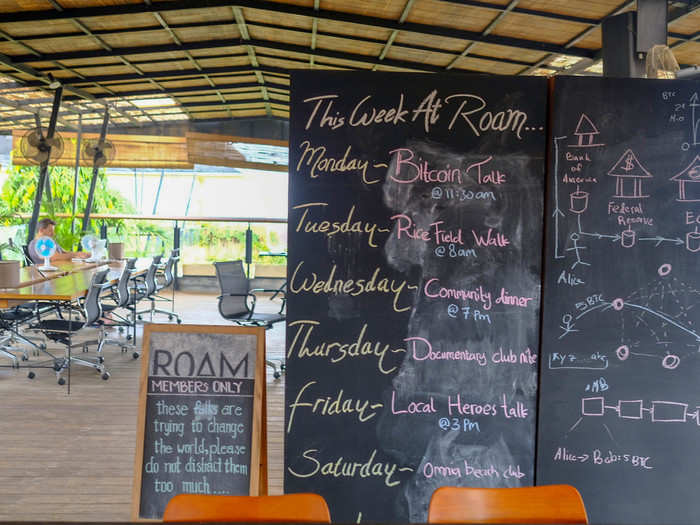 This Week At Roam...
Monday - Bitcoin Talk
@ 11:30am
Tuesday - Rice Field Walk
@ 8am
Wednesday - Community dinner
@ 7pm
Thursday - Documentary club nite
Friday - Local Heroes talk
@ 3pm
Saturday - Omnia beach club
ROAM
MEMBERS ONLY
these folks are
trying to change
the world, please
do not distract them
too much....
BTC
Bank
of
America
$
Federal
Reserve
$
Alice
5 BTC
MB
Alice → Bob: 5 BTC